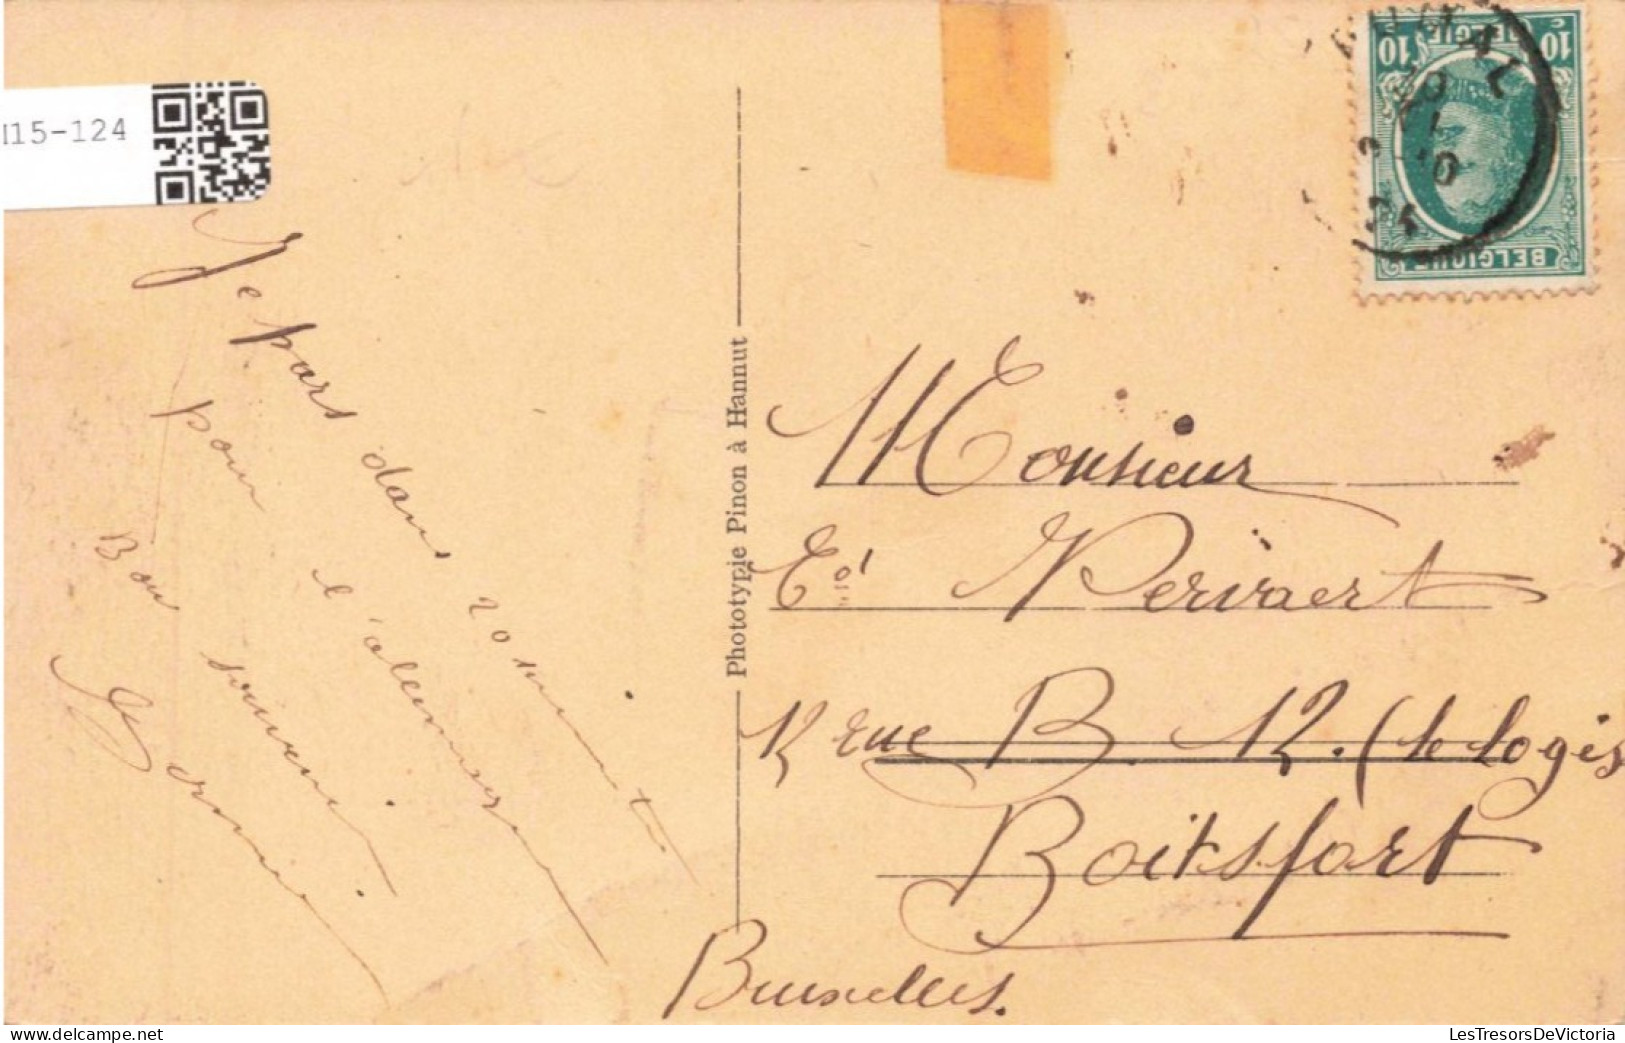 115-124
Je pars dans 20 minutes
pour l'allemagne
Bon souvenir
Germaine
Phototypie Pinon à Hannut
10 BELGIE 10
BELGIQUE
Monsieur
Ed Pervaert
12 rue B 12. (le logis
Boitsfort
Bruxelles.
LesTresorsDeVictoria